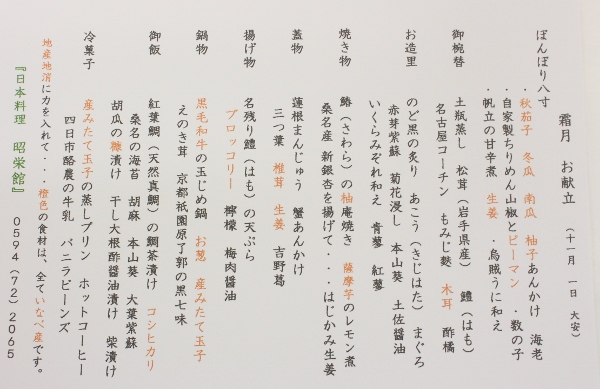 霜月 お献立 (十一月 一日 大安)
ぼんぼり八寸
・秋茄子 冬瓜 南瓜 柚子あんかけ 海老
・自家製ちりめん山椒とピーマン ・数の子
・帆立の甘辛煮 生姜 ・烏賊うに和え
御椀替 土瓶蒸し 松茸(岩手県産) 鱧(はも)
名古屋コーチン もみじ麩 木耳 酢橘
お造里 のど黒の炙り あこう(きじはた) まぐろ
赤芽紫蘇 菊花浸し 本山葵 土佐醤油
いくらみぞれ和え 青蓼 紅蓼
焼き物 鰆(さわら)の柚庵焼き 薩摩芋のレモン煮
桑名産 新銀杏を揚げて・・・はじかみ生姜
蓋物 蓮根まんじゅう 蟹あんかけ
三つ葉 椎茸 生姜 吉野葛
揚げ物 名残り鱧(はも)の天ぷら
ブロッコリー 檸檬 梅肉醤油
鍋物 黒毛和牛の玉じめ鍋 お葱 産みたて玉子
えのき茸 京都祇園原了郭の黒七味
御飯 紅葉鯛(天然真鯛)の鯛茶漬け コシヒカリ
桑名の海苔 胡麻 本山葵 大葉紫蘇
胡瓜の糠漬け 干し大根酢醤油漬け 柴漬け
冷菓子 産みたて玉子の蒸しプリン ホットコーヒー
四日市酪農の牛乳 バニラビーンズ
地産地消に力を入れて・・・橙色の食材は、全ていなべ産です。
『日本料理 昭栄館』 0594(72)2065